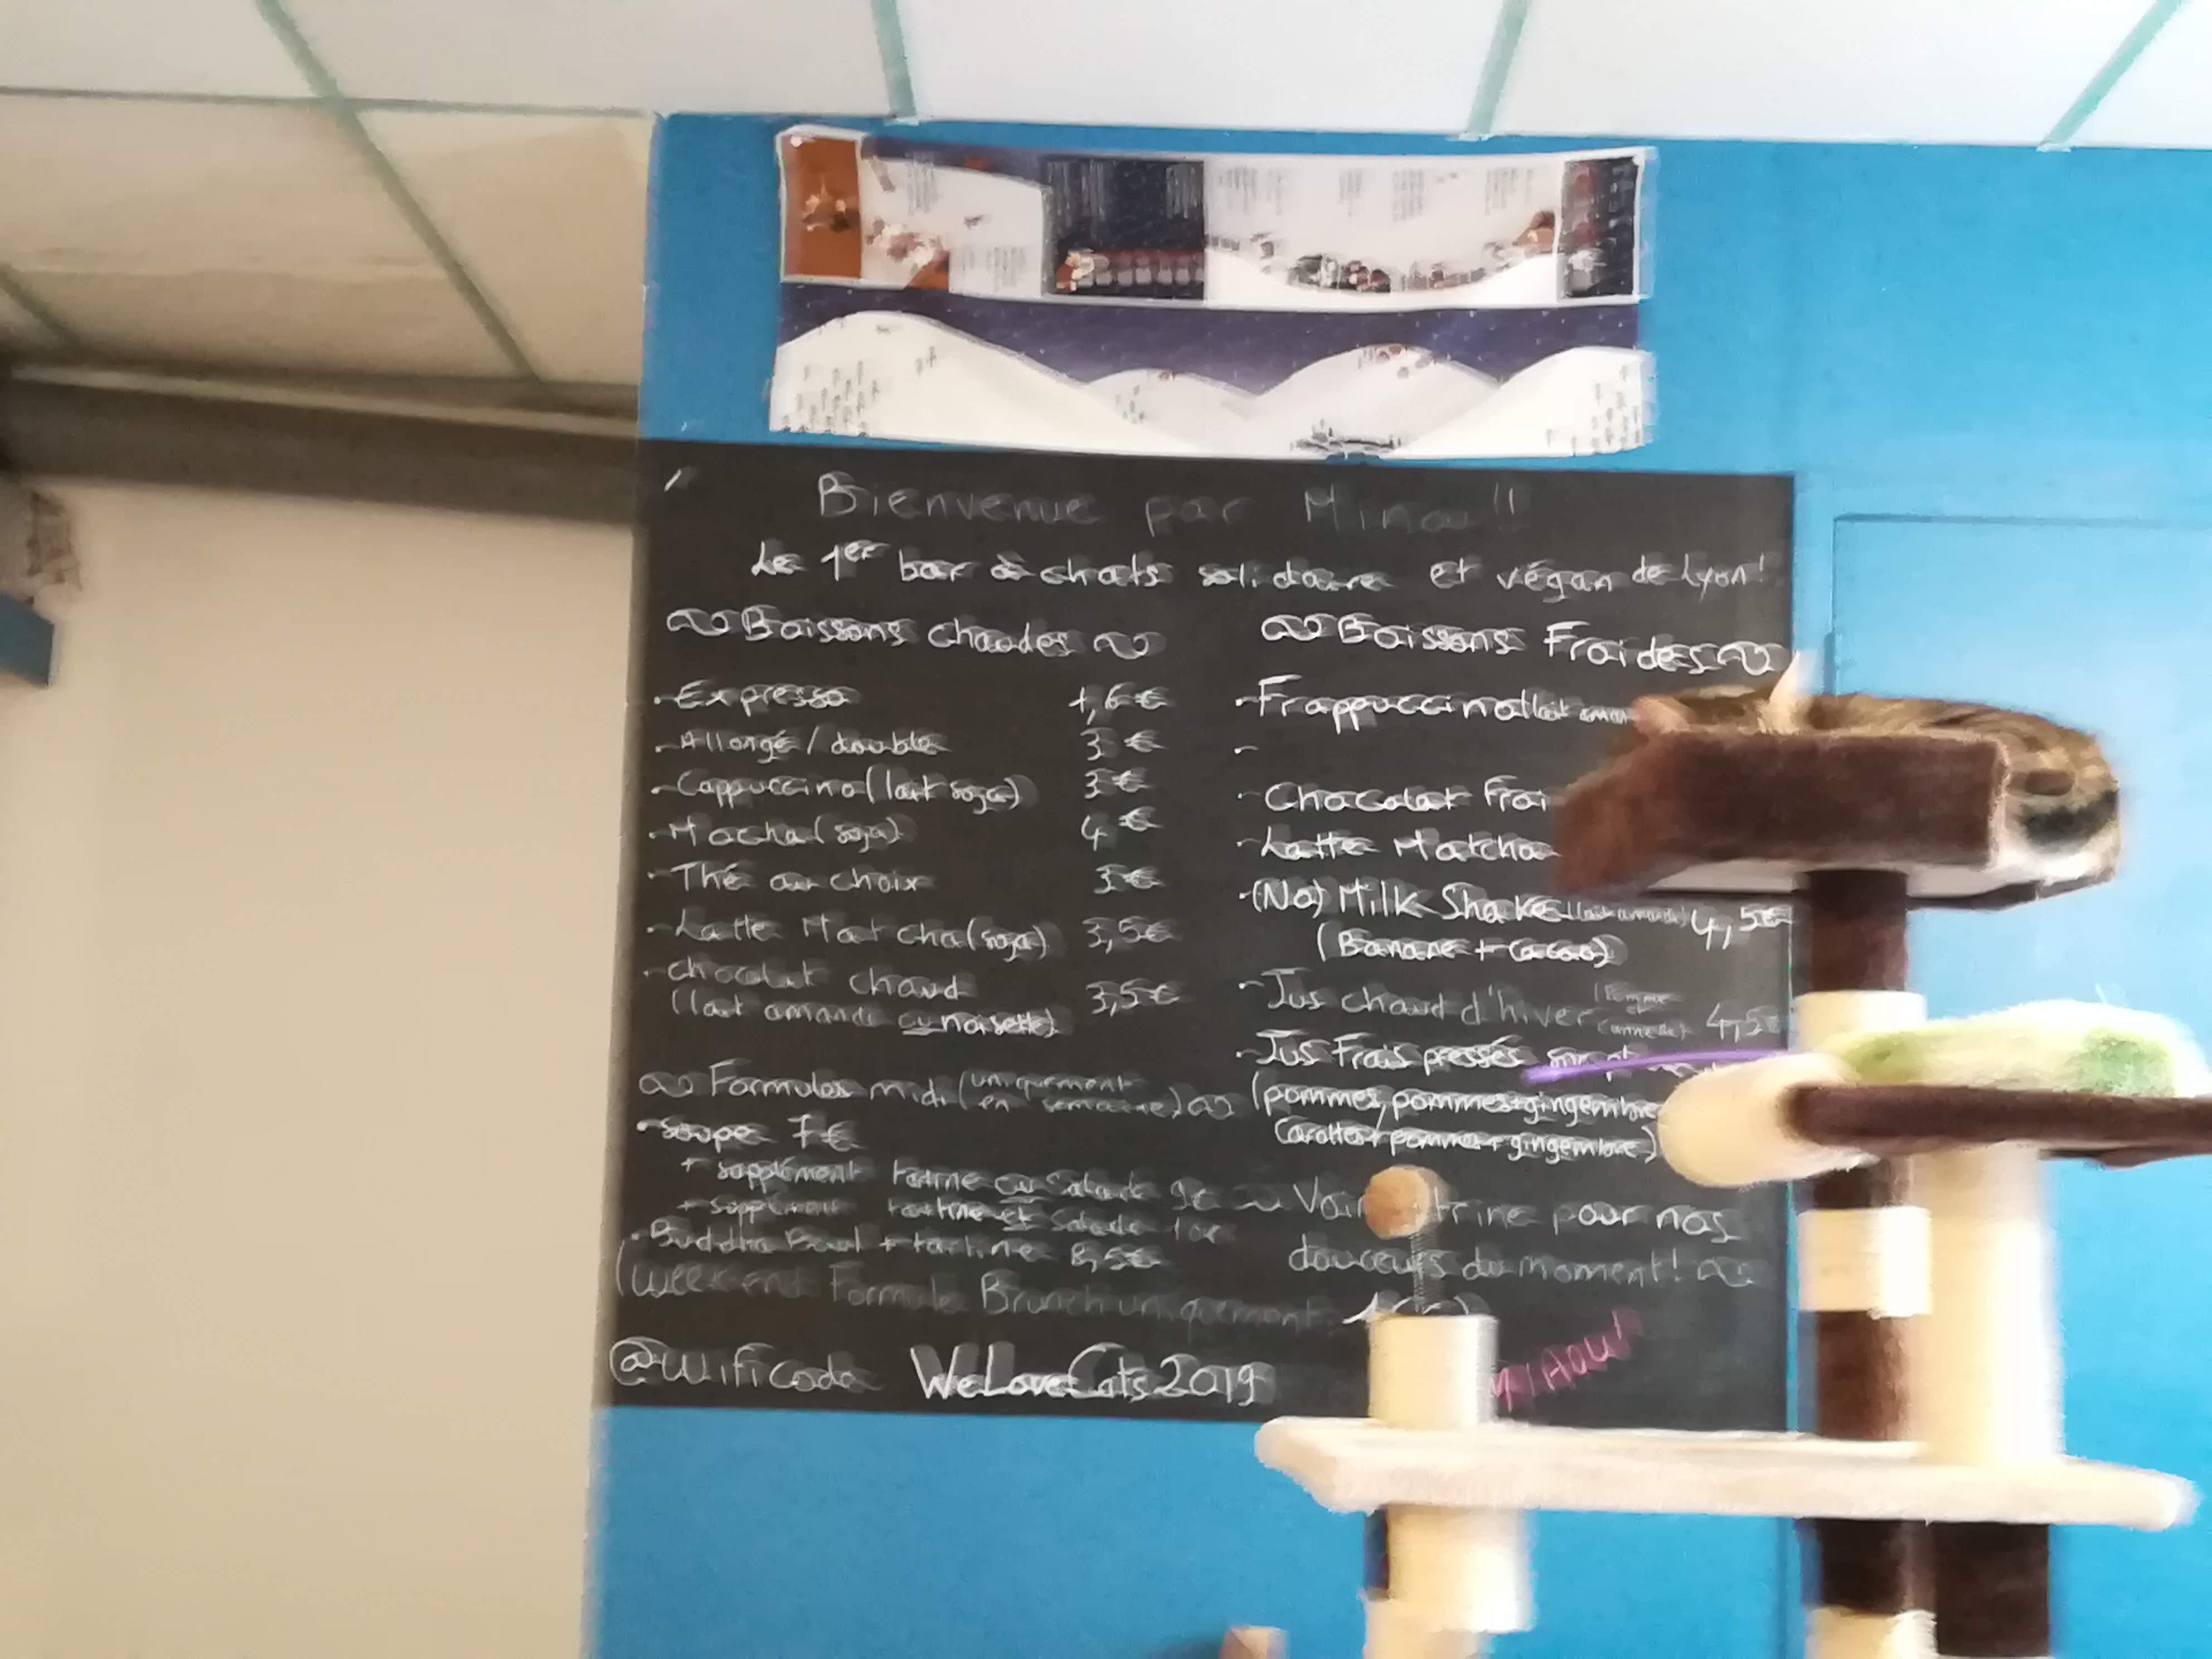 Bienvenue par Minou!!
Le 1er bar à chats solidaire et végan de Lyon!
Boissons chaudes
- Expresso 1,6€
- Allongé / double 3€
- Cappuccino (lait soja) 3€
- Mocha (soja) 4€
- Thé au choix 3€
- Latte Matcha (soja) 3,5€
- chocolat chaud 3,5€
(lait amande ou noisette)
Formules midi (uniquement en semaine)
- Soupe 7€
+ supplément tartine ou salade 9€
+ supplément tartine et salade 10€
- Buddha Bowl + tartine 8,5€
(Week-end Formule Brunch uniquement
@Wifi Code WeLoveCats2019
Boissons Fraides
- Frappuccino (lait
-
- Chocolat Froi
- Latte Matcha
- (No) Milk Shake (lait amande) 4,5€
(Banane + cacao)
- Jus chaud d'hiver (Pomme et cannelle) 4,5€
- Jus Frais pressés
(pommes, pommes+gingembre
Carottes+pommes+gingembre)
Voir trine pour nos
douceurs du moment!
MIAOU!